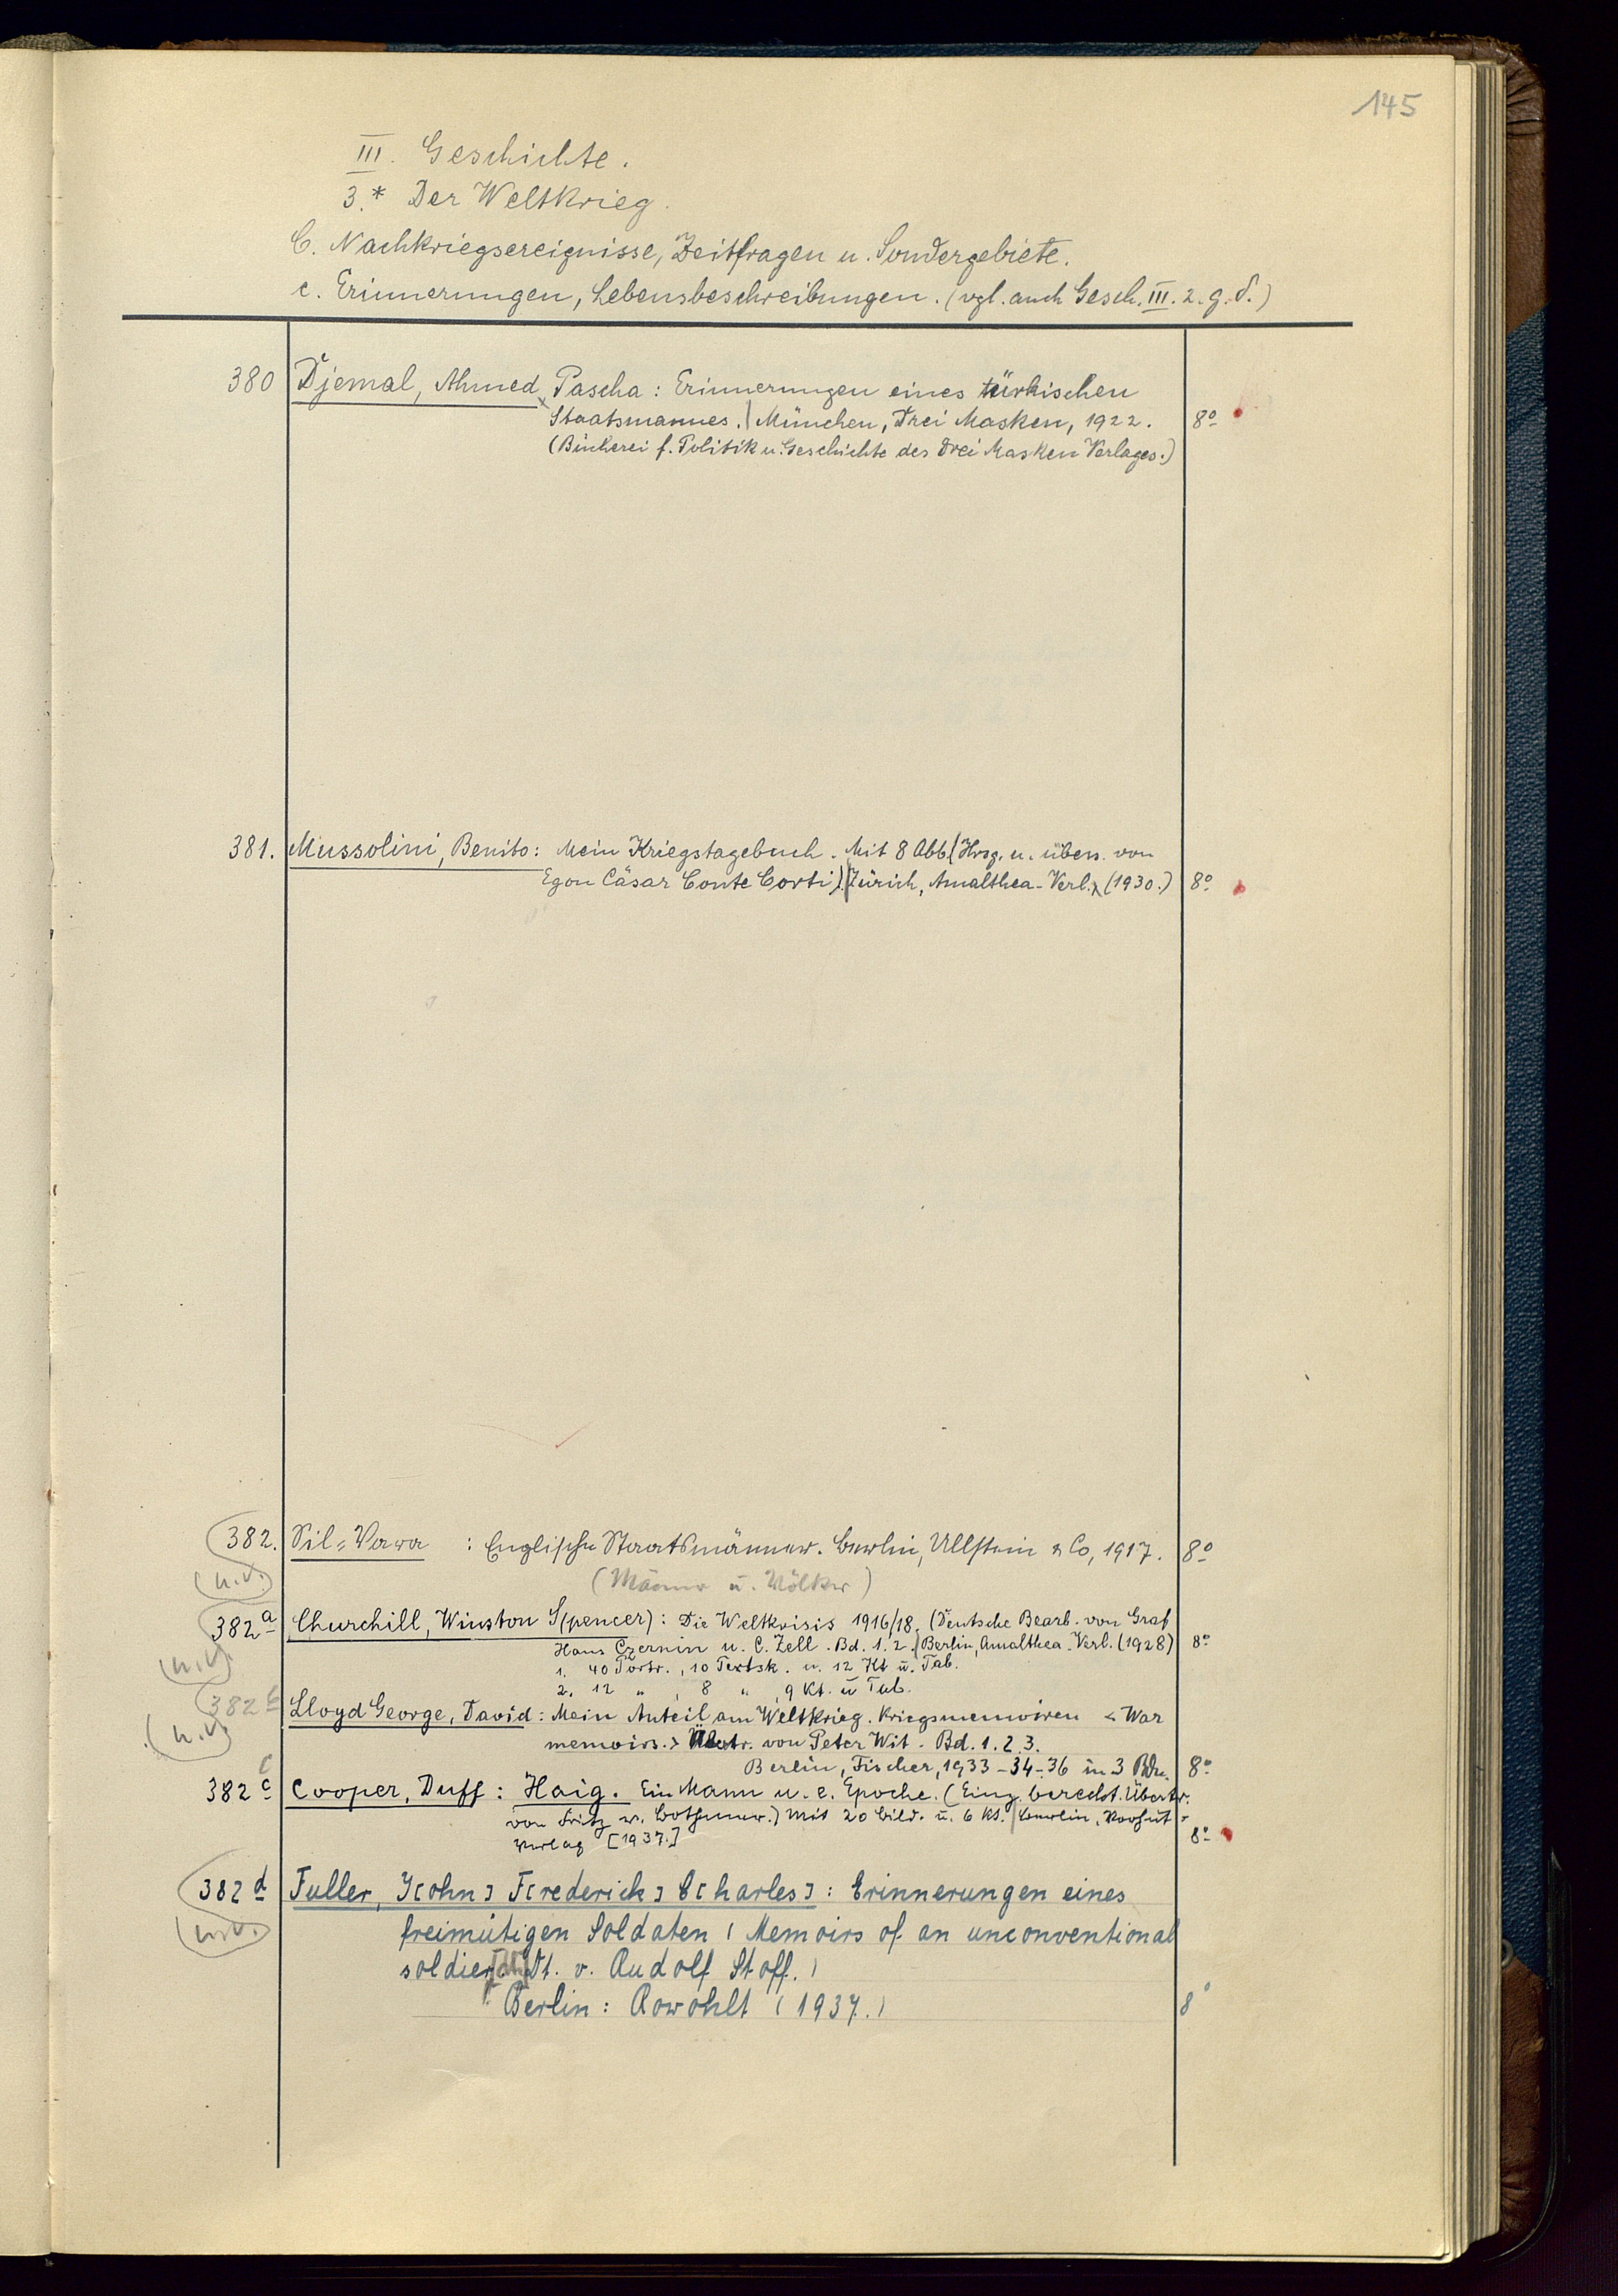 145
III. Geschichte.
3.* Der Weltkrieg.
C. Nachkriegsereignisse, Zeitfragen u. Sondergebiete.
c. Erinnerungen, Lebensbeschreibungen. (vgl. auch Gesch. III. 2. g. d.)
380 Djemal, Ahmed, Pascha: Erinnerungen eines türkischen
Staatsmannes. | München, Drei Masken, 1922. 8°
(Bücherei f. Politik u. Geschichte des Drei Masken Verlages.)
381. Mussolini, Benito: Mein Kriegstagebuch. Mit 8 Abb. (Hrsg. u. übers. von
Egon Cäsar Conte Corti). | Zürich, Amalthea-Verl. (1930.) 8°
382. Sil-Vara : Englische Staatsmänner. Berlin, Ullstein & Co, 1917. 8°
(n.v.) (Männer u. Völker)
382a Churchill, Winston S(pencer): Die Weltkrisis 1916/18. (Deutsche Bearb. von Graf
Hans Czernin u. C. Zell. Bd. 1. 2. | Berlin, Amalthea-Verl. (1928) 8°
(n.v.) 1. 40 Portr., 10 Textsk. u. 12 Kt u. Tab.
2. 12 " , 8 " , 9 Kt. u Tab.
382b Lloyd George, David: Mein Anteil am Weltkrieg. Kriegsmemoiren < War
(n.v.) memoirs. > Übertr. von Peter Wit. Bd. 1. 2. 3.
Berlin, Fischer, 1933-34-36 in 3 Bdn. 8°
382c Cooper, Duff: Haig. Ein Mann u. e. Epoche. (Einz. berecht. Übertr.
von Fritz v. Bothmer.) Mit 20 Bild. u. 6 Kt. | Berlin,
Verlag [1937.] 8°
382d Fuller, J[ohn] F[rederick] C[harles]: Erinnerungen eines
(n.v.) freimütigen Soldaten (Memoirs of an unconventional
soldier, dt. v. Rudolf Stoff.)
Berlin: Rowohlt (1937.) 8°